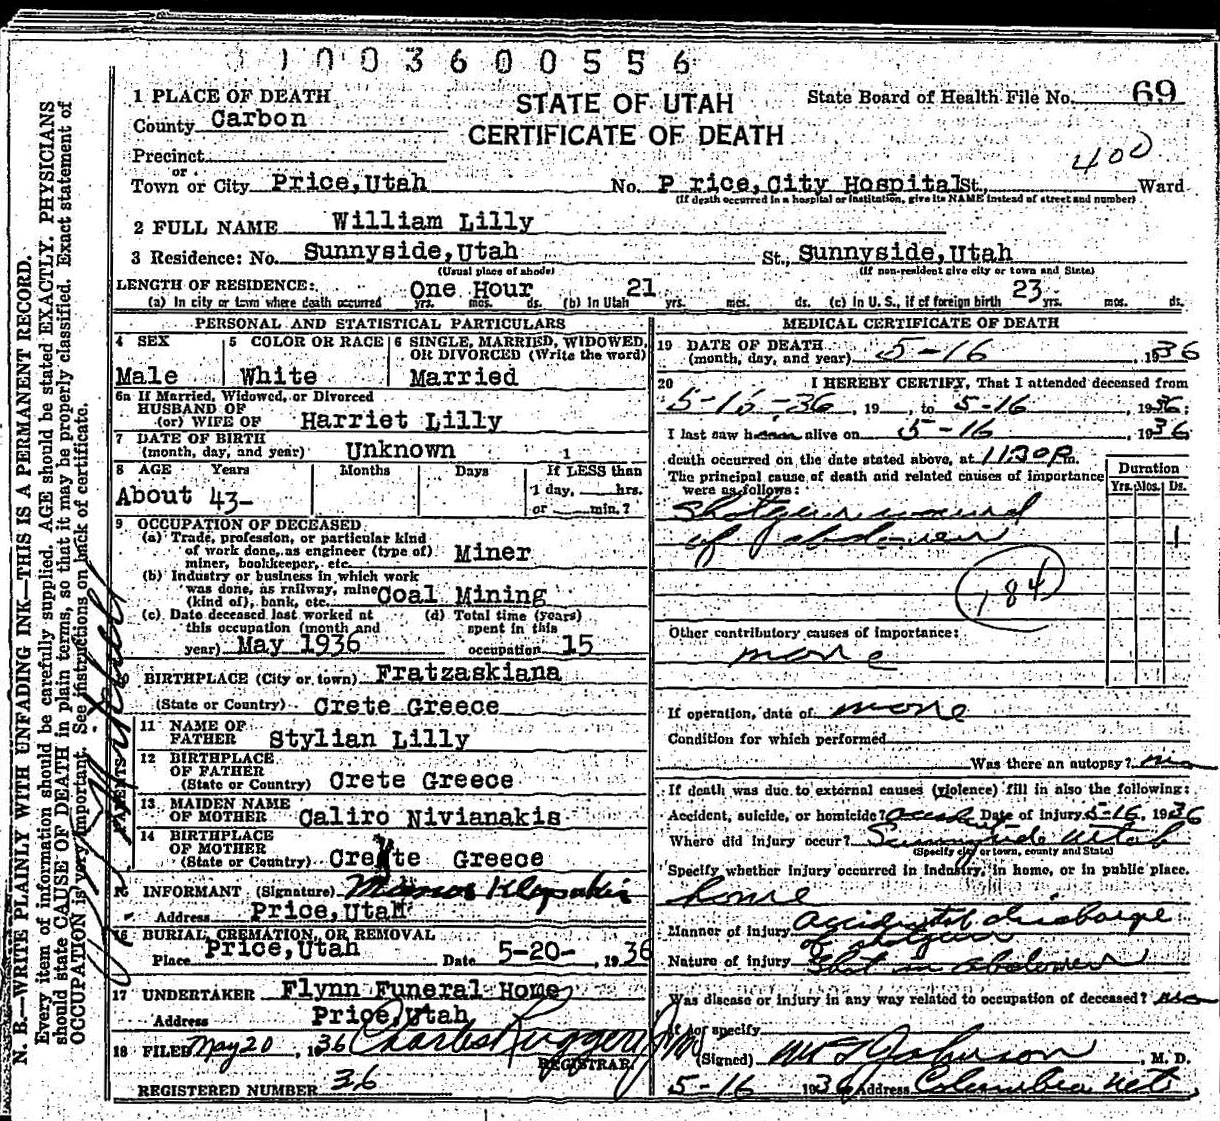 1003600556
1 PLACE OF DEATH
STATE OF UTAH
State Board of Health File No. 69
County Carbon
CERTIFICATE OF DEATH
400
Precinct
or
Town or City Price,Utah No. P rice,City Hospital St., Ward
(If death occurred in a hospital or institution, give its NAME instead of street and number)
2 FULL NAME William Lilly
3 Residence: No. Sunnyside,Utah St., Sunnyside,Utah
(Usual place of abode) (If non-resident give city or town and State)
LENGTH OF RESIDENCE: One Hour 21 23
(a) In city or town where death occurred yrs. mos. ds. (b) In Utah yrs. mos. ds. (c) In U. S., if of foreign birth yrs. mos. ds.
PERSONAL AND STATISTICAL PARTICULARS
4 SEX 5 COLOR OR RACE 6 SINGLE, MARRIED, WIDOWED,
OR DIVORCED (Write the word)
Male White Married
6a If Married, Widowed, or Divorced
HUSBAND OF
(or) WIFE OF Harriet Lilly
7 DATE OF BIRTH
(month, day, and year) Unknown
8 AGE Years Months Days If LESS than
1 day, hrs.
About 43- or min.?
9 OCCUPATION OF DECEASED
(a) Trade, profession, or particular kind
of work done, as engineer (type of)
miner, bookkeeper, etc. Miner
(b) Industry or business in which work
was done, as railway, mine
(kind of), bank, etc. Coal Mining
(c) Date deceased last worked at
this occupation (month and
year) May 1936
(d) Total time (years)
spent in this
occupation 15
BIRTHPLACE (City or town) Fratzaskiana
(State or Country) Crete Greece
PARENTS
11 NAME OF
FATHER Stylian Lilly
12 BIRTHPLACE
OF FATHER
(State or Country) Crete Greece
13 MAIDEN NAME
OF MOTHER Caliro Nivianakis
14 BIRTHPLACE
OF MOTHER
(State or Country) Crete Greece
INFORMANT (Signature)
Address Price,Utah
16 BURIAL, CREMATION, OR REMOVAL
Place Price,Utah Date 5-20-, 1936
17 UNDERTAKER Flynn Funeral Home
Address Price,Utah
18 FILED May 20, 1936 Charles Ruggeri Jr
REGISTRAR.
REGISTERED NUMBER 36
MEDICAL CERTIFICATE OF DEATH
19 DATE OF DEATH
(month, day, and year) 5-16, 1936
20 I HEREBY CERTIFY, That I attended deceased from
5-16-36, 19, to 5-16, 1936;
I last saw h alive on 5-16, 1936
death occurred on the date stated above, at 11:30 P m.
The principal cause of death and related causes of importance
were as follows:
Duration
Yrs. Mos. Ds.
Shotgun wound
of abdomen 1
184
Other contributory causes of importance:
none
If operation, date of none
Condition for which performed
Was there an autopsy? no
If death was due to external causes (violence) fill in also the following:
Accident, suicide, or homicide? accident Date of injury 5-16, 1936
Where did injury occur? Sunnyside Utah
(Specify city or town, county and State)
Specify whether injury occurred in industry, in home, or in public place.
home
Manner of injury accidental discharge
of shotgun
Nature of injury Shot in abdomen
Was disease or injury in any way related to occupation of deceased? no
If so, specify
(Signed) Johnson, M. D.
5-16 1936 Address Columbia Utah
N. B.—WRITE PLAINLY WITH UNFADING INK—THIS IS A PERMANENT RECORD.
Every item of information should be carefully supplied. AGE should be stated EXACTLY. PHYSICIANS
should state CAUSE OF DEATH in plain terms, so that it may be properly classified. Exact statement of
OCCUPATION is very important. See instructions on back of certificate.